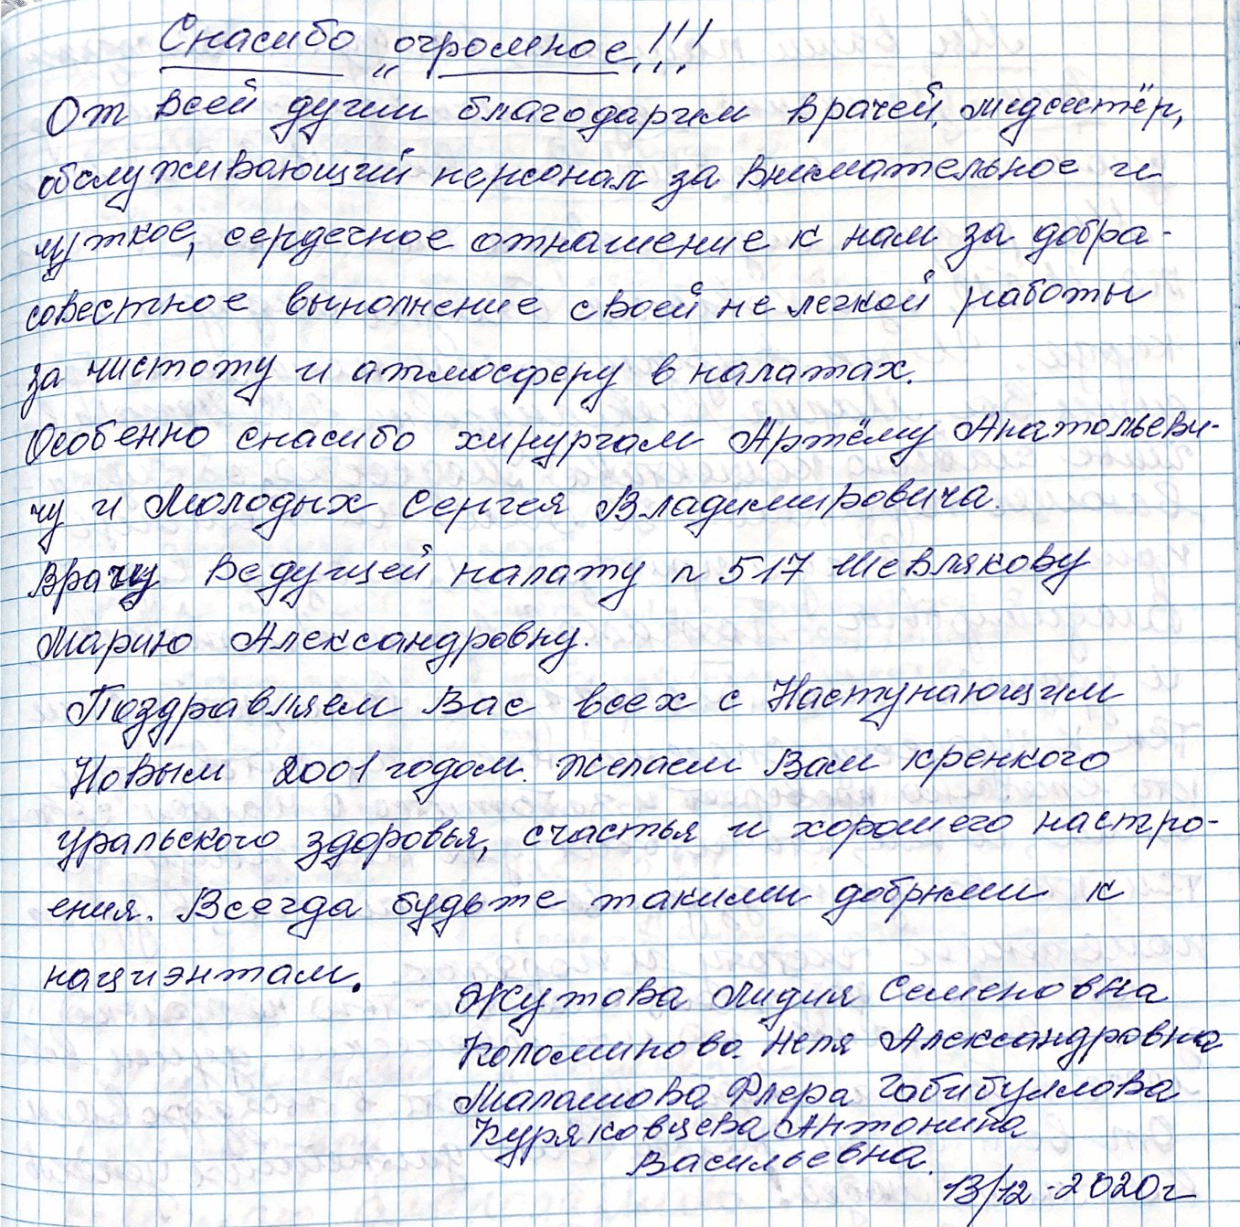 Спасибо огромное!!!
От всей души благодарим врачей, медсестёр,
обслуживающий персонал за внимательное и
чуткое, сердечное отнашение к нам за добра-
совестное выполнение своей не легкой работы
за чистоту и атмосферу в палатах.
Особенно спасибо хирургам Артёму Анатольеви-
чу и Молодых Сергея Владимировича.
Врачу Ведущей палату п 517 Шевлякову
Марию Александровну.
Поздравляем Вас всех с Наступающим
Новым 2001 годом. Желаем Вам крепкого
уральского здоровья, счастья и хорошего настро-
ения. Всегда будьте такими добрыми к
пациэнтам.
Жутова Лидия Семеновна
Коломинова Неля Александровна
Малашова Флера Габибулловa
Куряковцева Антонина
Васильевна.
13/12-2020г